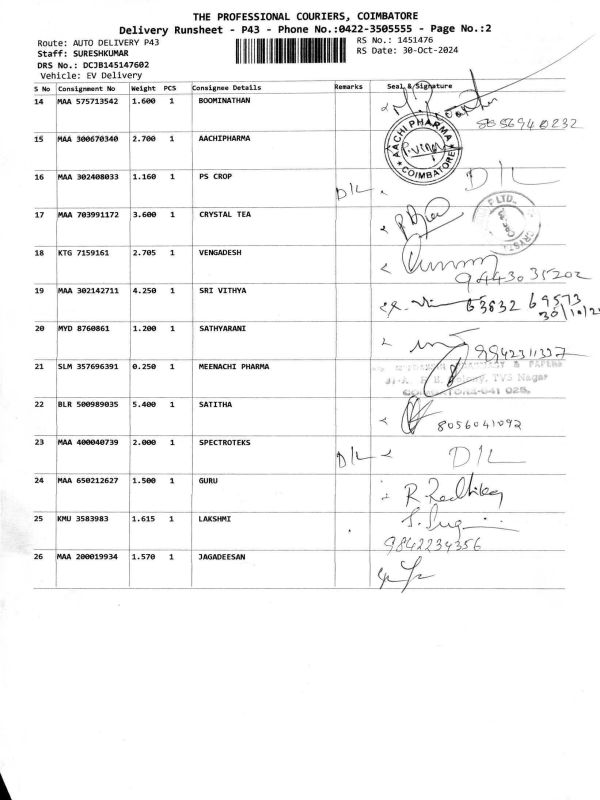 THE PROFESSIONAL COURIERS, COIMBATORE
Delivery Runsheet - P43 - Phone No.:0422-3505555 - Page No.:2
Route: AUTO DELIVERY P43
Staff: SURESHKUMAR
DRS No.: DCJB145147602
Vehicle: EV Delivery
RS No.: 1451476
RS Date: 30-Oct-2024
S No Consignment No Weight PCS Consignee Details Remarks Seal & Signature
14 MAA 575713542 1.600 1 BOOMINATHAN
8056940232
15 MAA 300670340 2.700 1 AACHIPHARMA
AACHI PHARMA
COIMBATORE
16 MAA 302408033 1.160 1 PS CROP D/L D/L
17 MAA 703991172 3.600 1 CRYSTAL TEA
18 KTG 7159161 2.705 1 VENGADESH
9443035202
19 MAA 302142711 4.250 1 SRI VITHYA
63832 69573
20 MYD 8760861 1.200 1 SATHYARANI
9942311327
21 SLM 357696391 0.250 1 MEENACHI PHARMA
TVS Nagar
22 BLR 500989035 5.400 1 SATITHA
8056041092
23 MAA 400040739 2.000 1 SPECTROTEKS D/L D/L
24 MAA 650212627 1.500 1 GURU R. Radhika
25 KMU 3583983 1.615 1 LAKSHMI
9842234356
26 MAA 200019934 1.570 1 JAGADEESAN